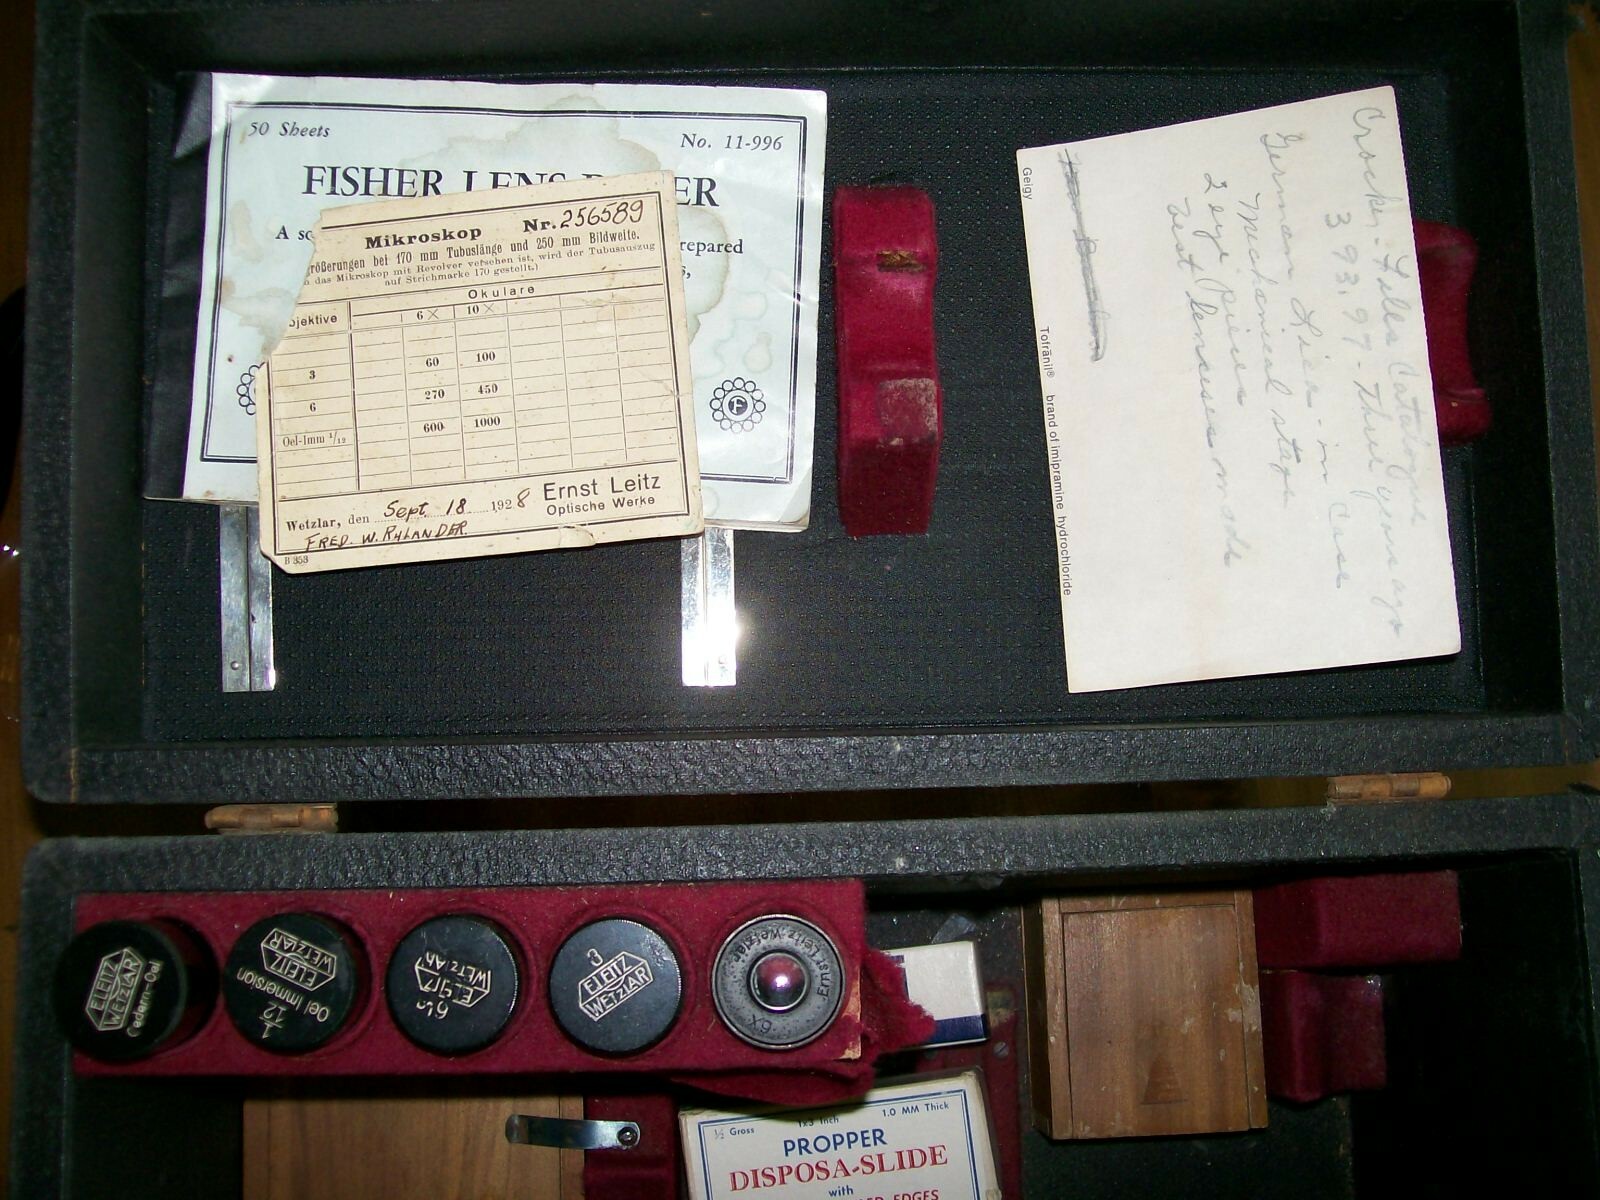 50 Sheets
No. 11-996
FISHER LENS
A
repared
F
Mikroskop Nr. 256589
rößerungen bei 170 mm Tubuslänge und 250 mm Bildweite.
das Mikroskop mit Revolver versehen ist, wird der Tubusauszug
auf Strichmarke 170 gestellt.)
Okulare
jektive
6 X 10 X
3 60 100
6 270 450
Oel-Imm 1/12 600 1000
Wetzlar, den Sept. 18 1928
FRED. W. RYLANDER
Ernst Leitz
Optische Werke
B 353
Geigy
Tofrānil® brand of imipramine hydrochloride
Catalogue
393.97 - Three years ago
German - in Case
Mechanical stage
2 eye pieces
E. LEITZ
WETZLAR
Cedern-Oel
E. LEITZ
WETZLAR
1/12
Oel Immersion
E. LEITZ
WETZLAR
3
E. LEITZ
WETZLAR
Ernst Leitz Wetzlar
6X
½ Gross
1x3 Inch
1.0 MM Thick
PROPPER
DISPOSA-SLIDE
with
EDGES